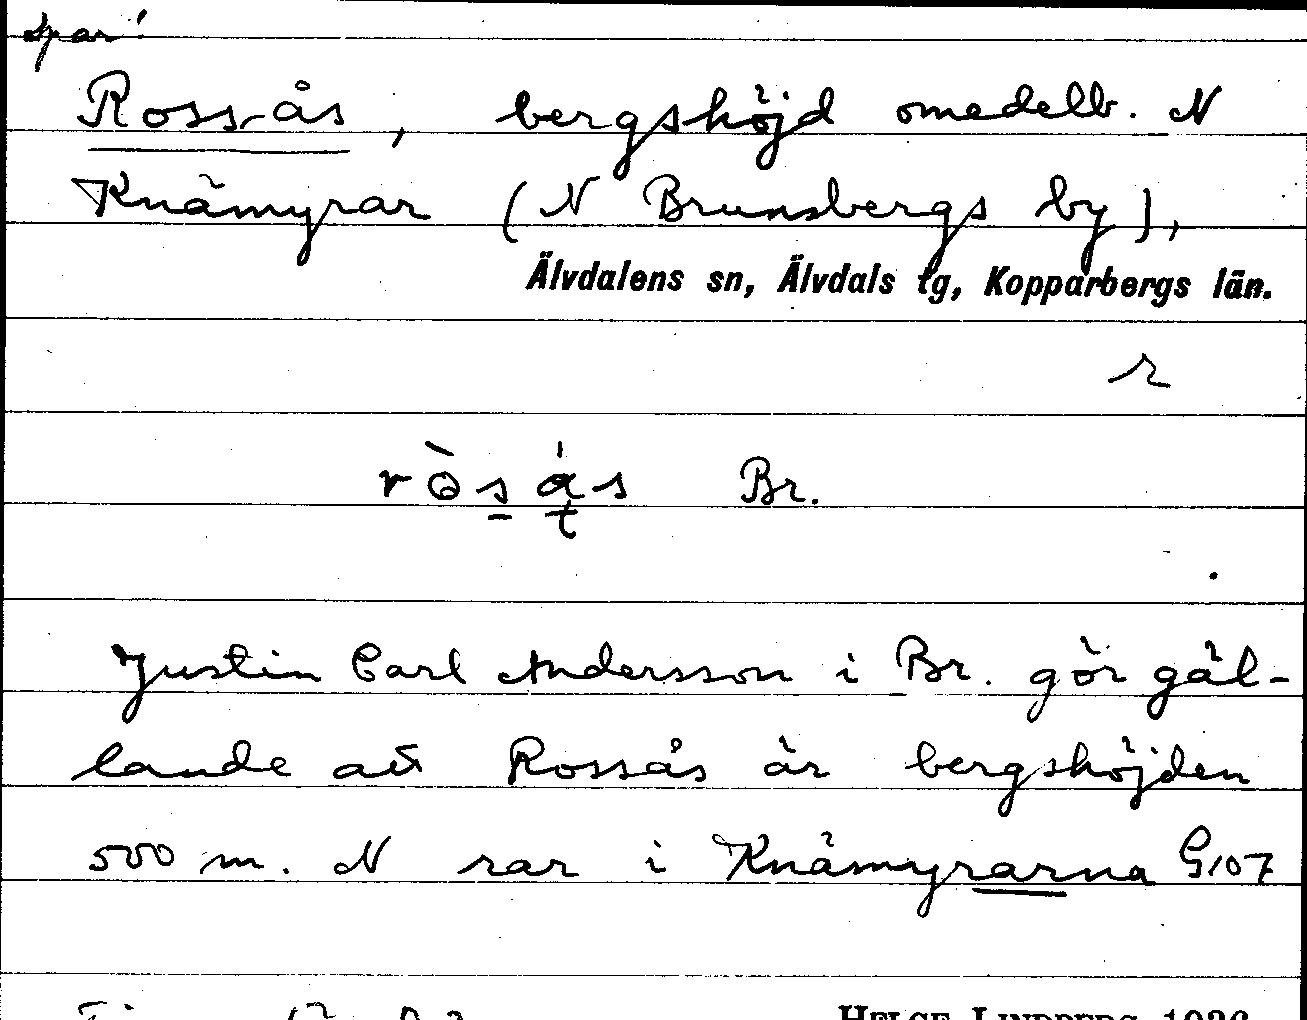 spar!
Rossås, bergshöjd omedelb. N
Knämyrar (N Brunsbergs by),
Älvdalens sn, Älvdals tg, Kopparbergs län.
r
Br.
Justin Carl Andersson i Br. gör gäl-
lande att Rossås är bergshöjden
500 m. N rar i Knämyrarna G107
HELGE LINDBERG 1936